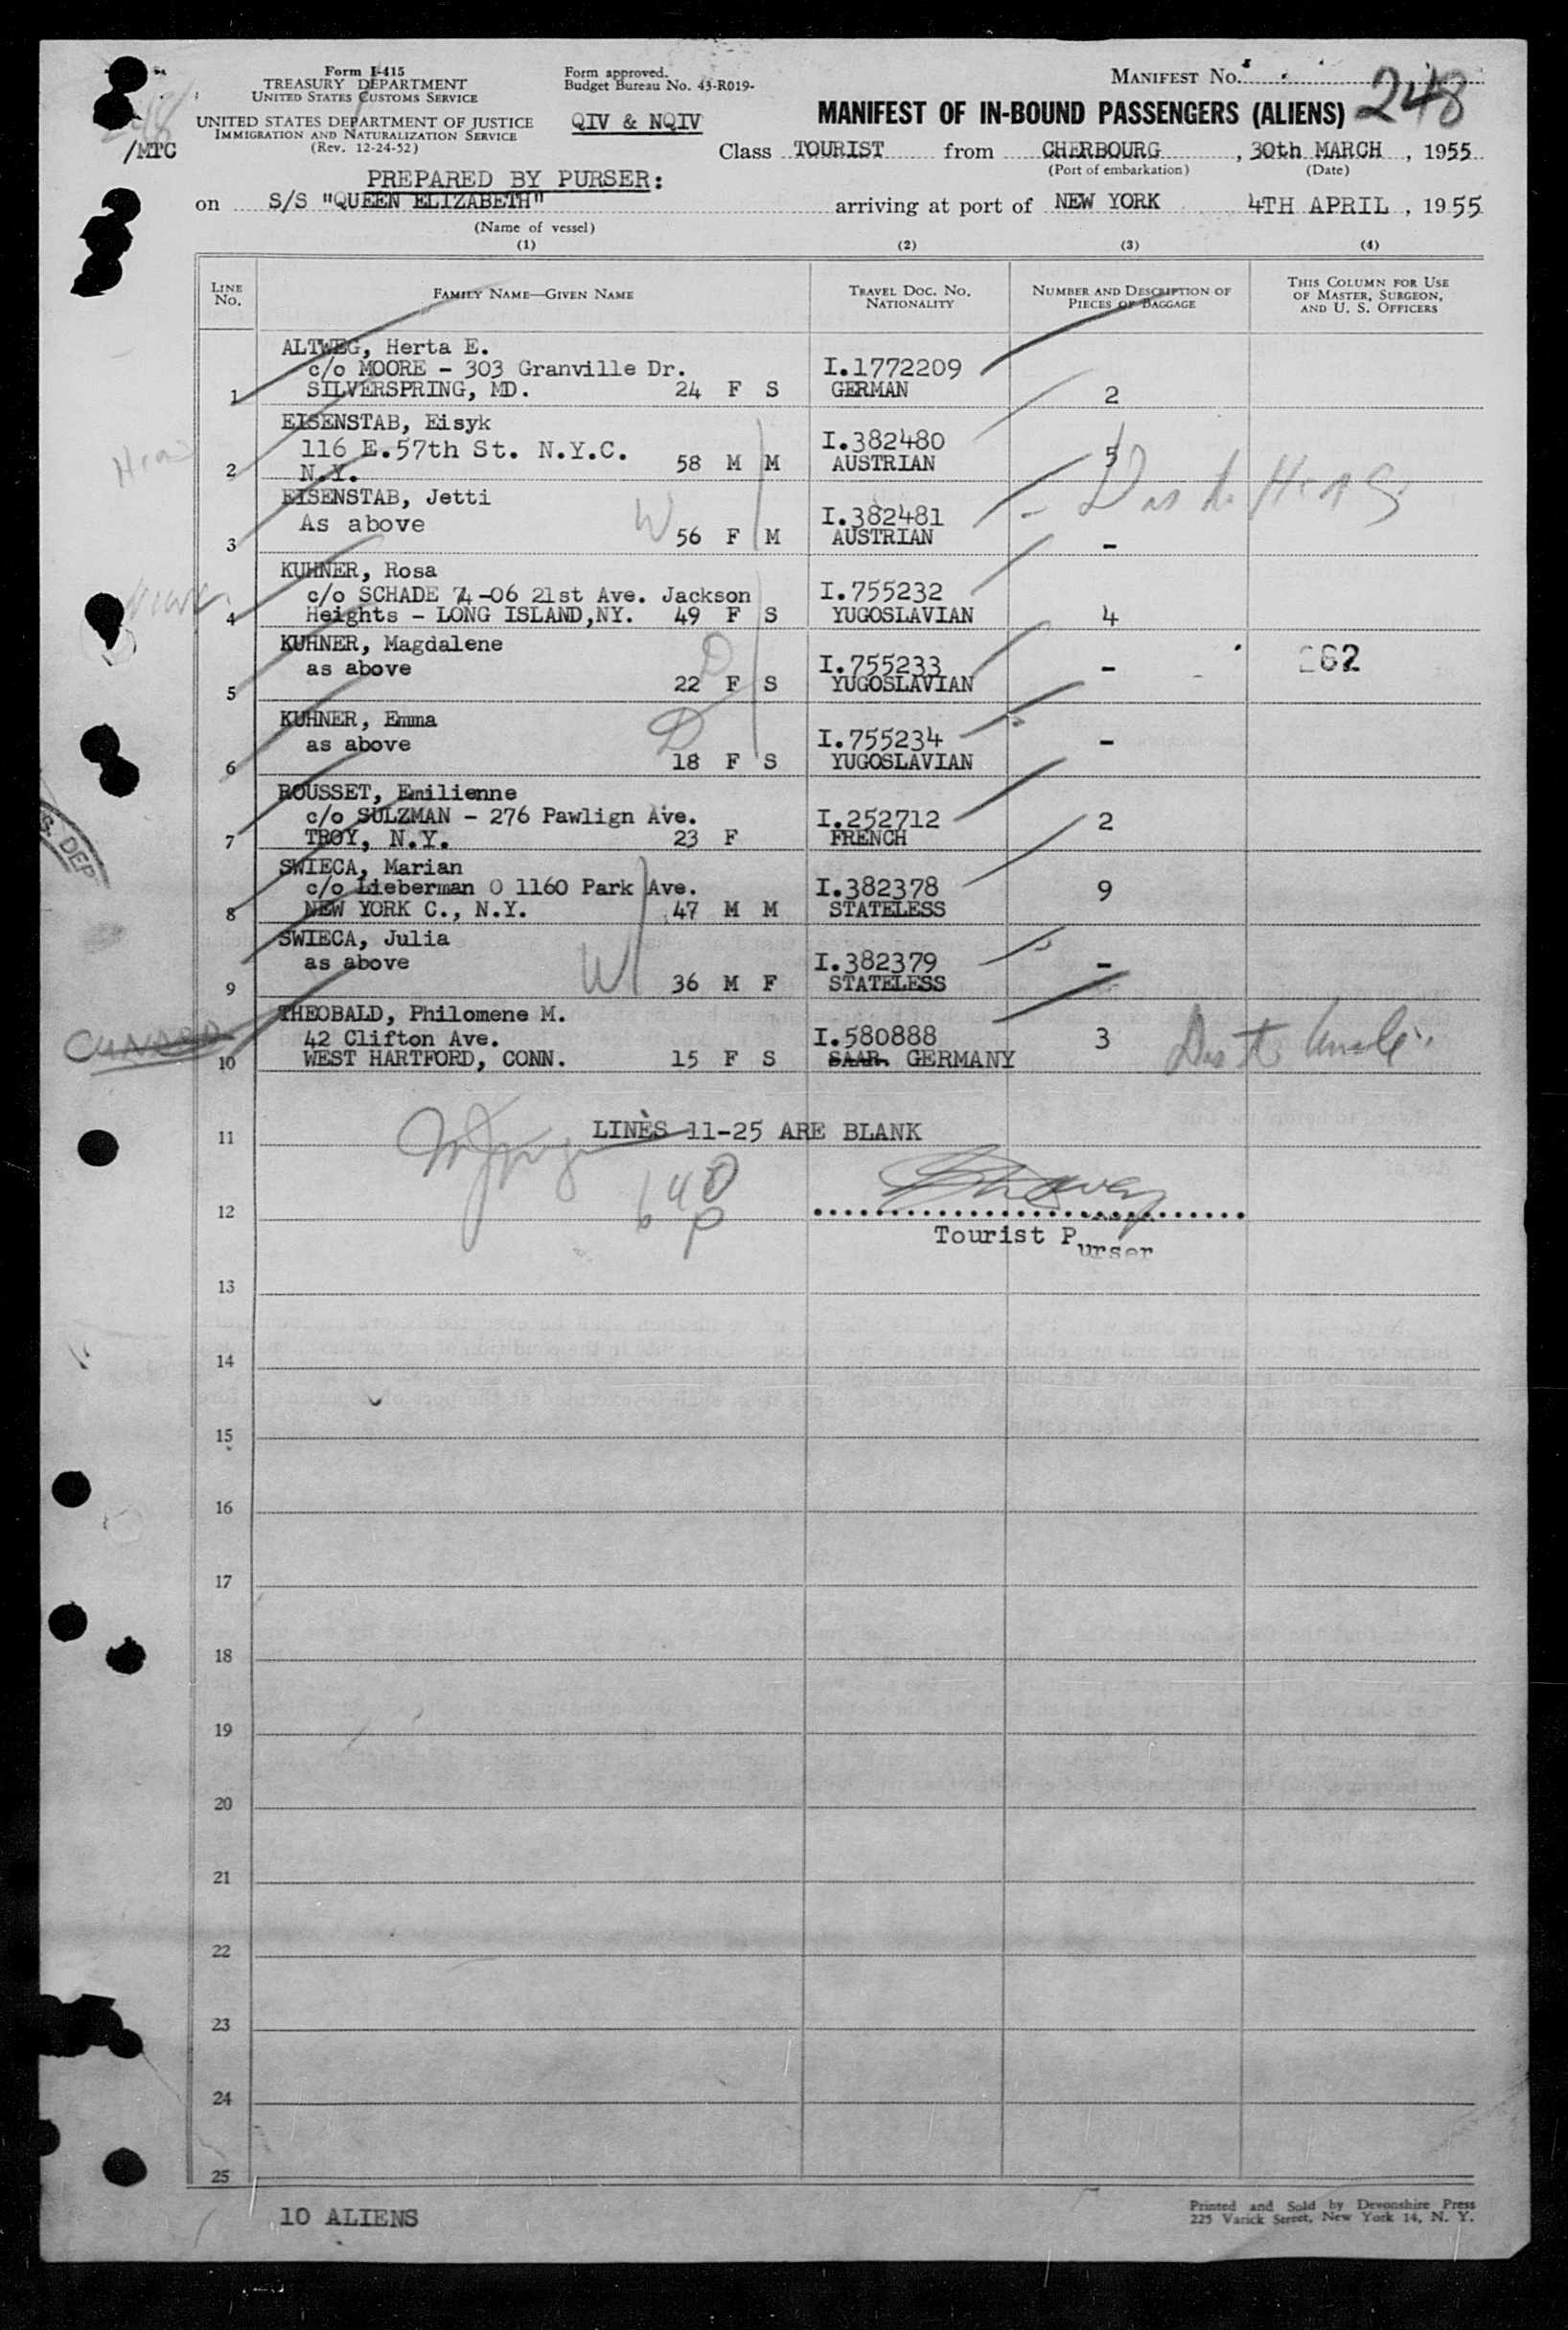 Form I-415
TREASURY DEPARTMENT
UNITED STATES CUSTOMS SERVICE
UNITED STATES DEPARTMENT OF JUSTICE
IMMIGRATION AND NATURALIZATION SERVICE
(Rev. 12-24-52)
/MTC
Form approved.
Budget Bureau No. 43-R019-
QIV & NQIV
MANIFEST NO.
248
MANIFEST OF IN-BOUND PASSENGERS (ALIENS)
Class TOURIST from CHERBOURG, 30th MARCH, 1955
(Port of embarkation) (Date)
PREPARED BY PURSER:
on S/S "QUEEN ELIZABETH" arriving at port of NEW YORK 4TH APRIL, 1955
(Name of vessel)
(1) (2) (3) (4)
LINE No. FAMILY NAME—GIVEN NAME TRAVEL DOC. NO. NATIONALITY NUMBER AND DESCRIPTION OF PIECES OF BAGGAGE THIS COLUMN FOR USE OF MASTER, SURGEON, AND U. S. OFFICERS
ALTWEG, Herta E.
c/o MOORE - 303 Granville Dr. I.1772209
1 SILVERSPRING, MD. 24 F S GERMAN 2
EISENSTAB, Eisyk
116 E.57th St. N.Y.C. I.382480
2 N.Y. 58 M M AUSTRIAN 5
EISENSTAB, Jetti
As above I.382481
3 W 56 F M AUSTRIAN -
KUHNER, Rosa
c/o SCHADE 74-06 21st Ave. Jackson I.755232
4 Heights - LONG ISLAND,NY. 49 F S YUGOSLAVIAN 4
KUHNER, Magdalene
as above D I.755233 262
5 22 F S YUGOSLAVIAN -
KUHNER, Emma
as above D I.755234
6 18 F S YUGOSLAVIAN -
ROUSSET, Emilienne
c/o SULZMAN - 276 Pawlign Ave. I.252712
7 TROY, N.Y. 23 F FRENCH 2
SWIECA, Marian
c/o Lieberman O 1160 Park Ave. I.382378
8 NEW YORK C., N.Y. 47 M M STATELESS 9
SWIECA, Julia
as above I.382379
9 W 36 M F STATELESS -
THEOBALD, Philomene M.
42 Clifton Ave. I.580888
CUNARD
10 WEST HARTFORD, CONN. 15 F S SAAR. GERMANY 3
11 LINES 11-25 ARE BLANK
12
Tourist Purser
13
14
15
16
17
18
19
20
21
22
23
24
25
10 ALIENS
Printed and Sold by Devonshire Press
225 Varick Street, New York 14, N. Y.